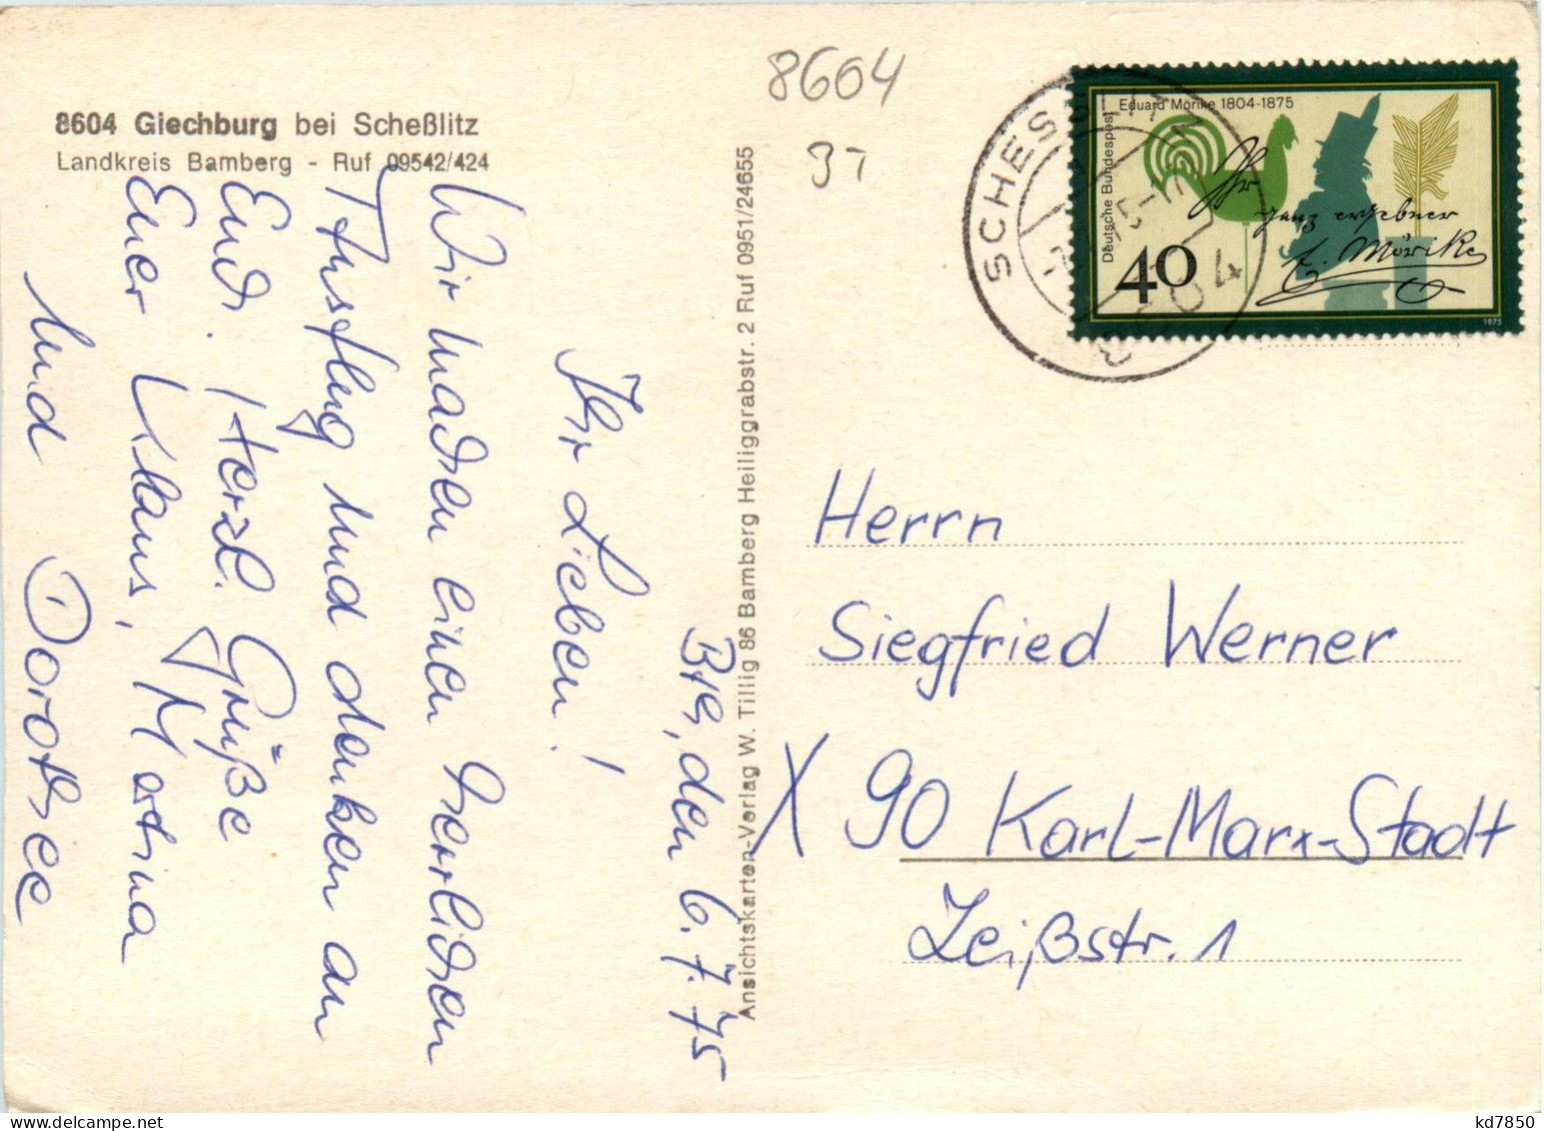 8604 Giechburg bei Scheßlitz
Landkreis Bamberg - Ruf 09542/424
Bbg, den 6.7.75
Ihr Lieben!
Wir machen einen herrlichen
Ausflug und denken an
Euch. Herzl. Grüße
Euer Klaus, Martina
und Dorothee
Ansichtskarten-Verlag W. Tillig 86 Bamberg Heiliggrabstr. 2 Ruf 0951/24655
8604
SCHESSLITZ
8604
Eduard Mörike 1804-1875
Deutsche Bundespost
40
Ihr
ganz ergebner
E. Mörike
1975
Herrn
Siegfried Werner
X 90 Karl-Marx-Stadt
Zeißstr. 1
kd7850